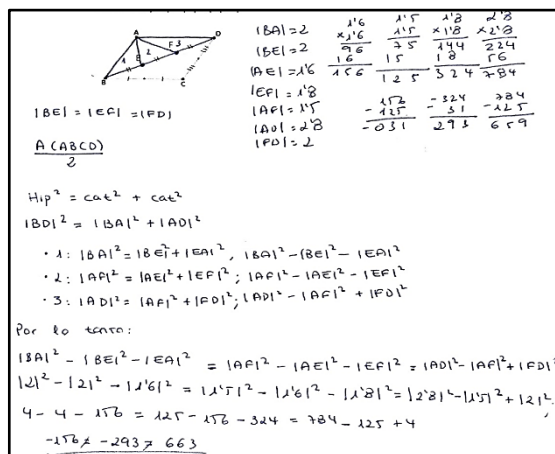 A
D
F 3
1
E
2
B
C
|BA| = 2
|BE| = 2
|AE| = 1'6
|EF| = 1'8
|AF| = 1'5
|AD| = 2'8
|FD| = 2
1'6
x1'6
96
16
156
1'5
x1'5
75
15
125
1'8
x1'8
144
18
324
2'8
x2'8
224
56
784
156
-125
-031
-324
-31
293
784
-125
659
|BE| = |EF| = |FD|
A(ABCD)
2
Hip² = cat² + cat²
|BD|² = |BA|² + |AD|²
· 1: |BA|² = |BE|² + |EA|², |BA|² - |BE|² - |EA|²
· 2: |AF|² = |AE|² + |EF|²; |AF|² - |AE|² - |EF|²
· 3: |AD|² = |AF|² + |FD|²; |AD|² - |AF|² + |FD|²
Por lo tanto:
|BA|² - |BE|² - |EA|² = |AF|² - |AE|² - |EF|² = |AD|² - |AF|² + |FD|²
|2|² - |2|² - |1'6|² = |1'5|² - |1'6|² - |1'8|² = |2'8|² - |1'5|² + |2|²
4 - 4 - 156 = 125 - 156 - 324 = 784 - 125 + 4
-156 ≠ -293 ≠ 663